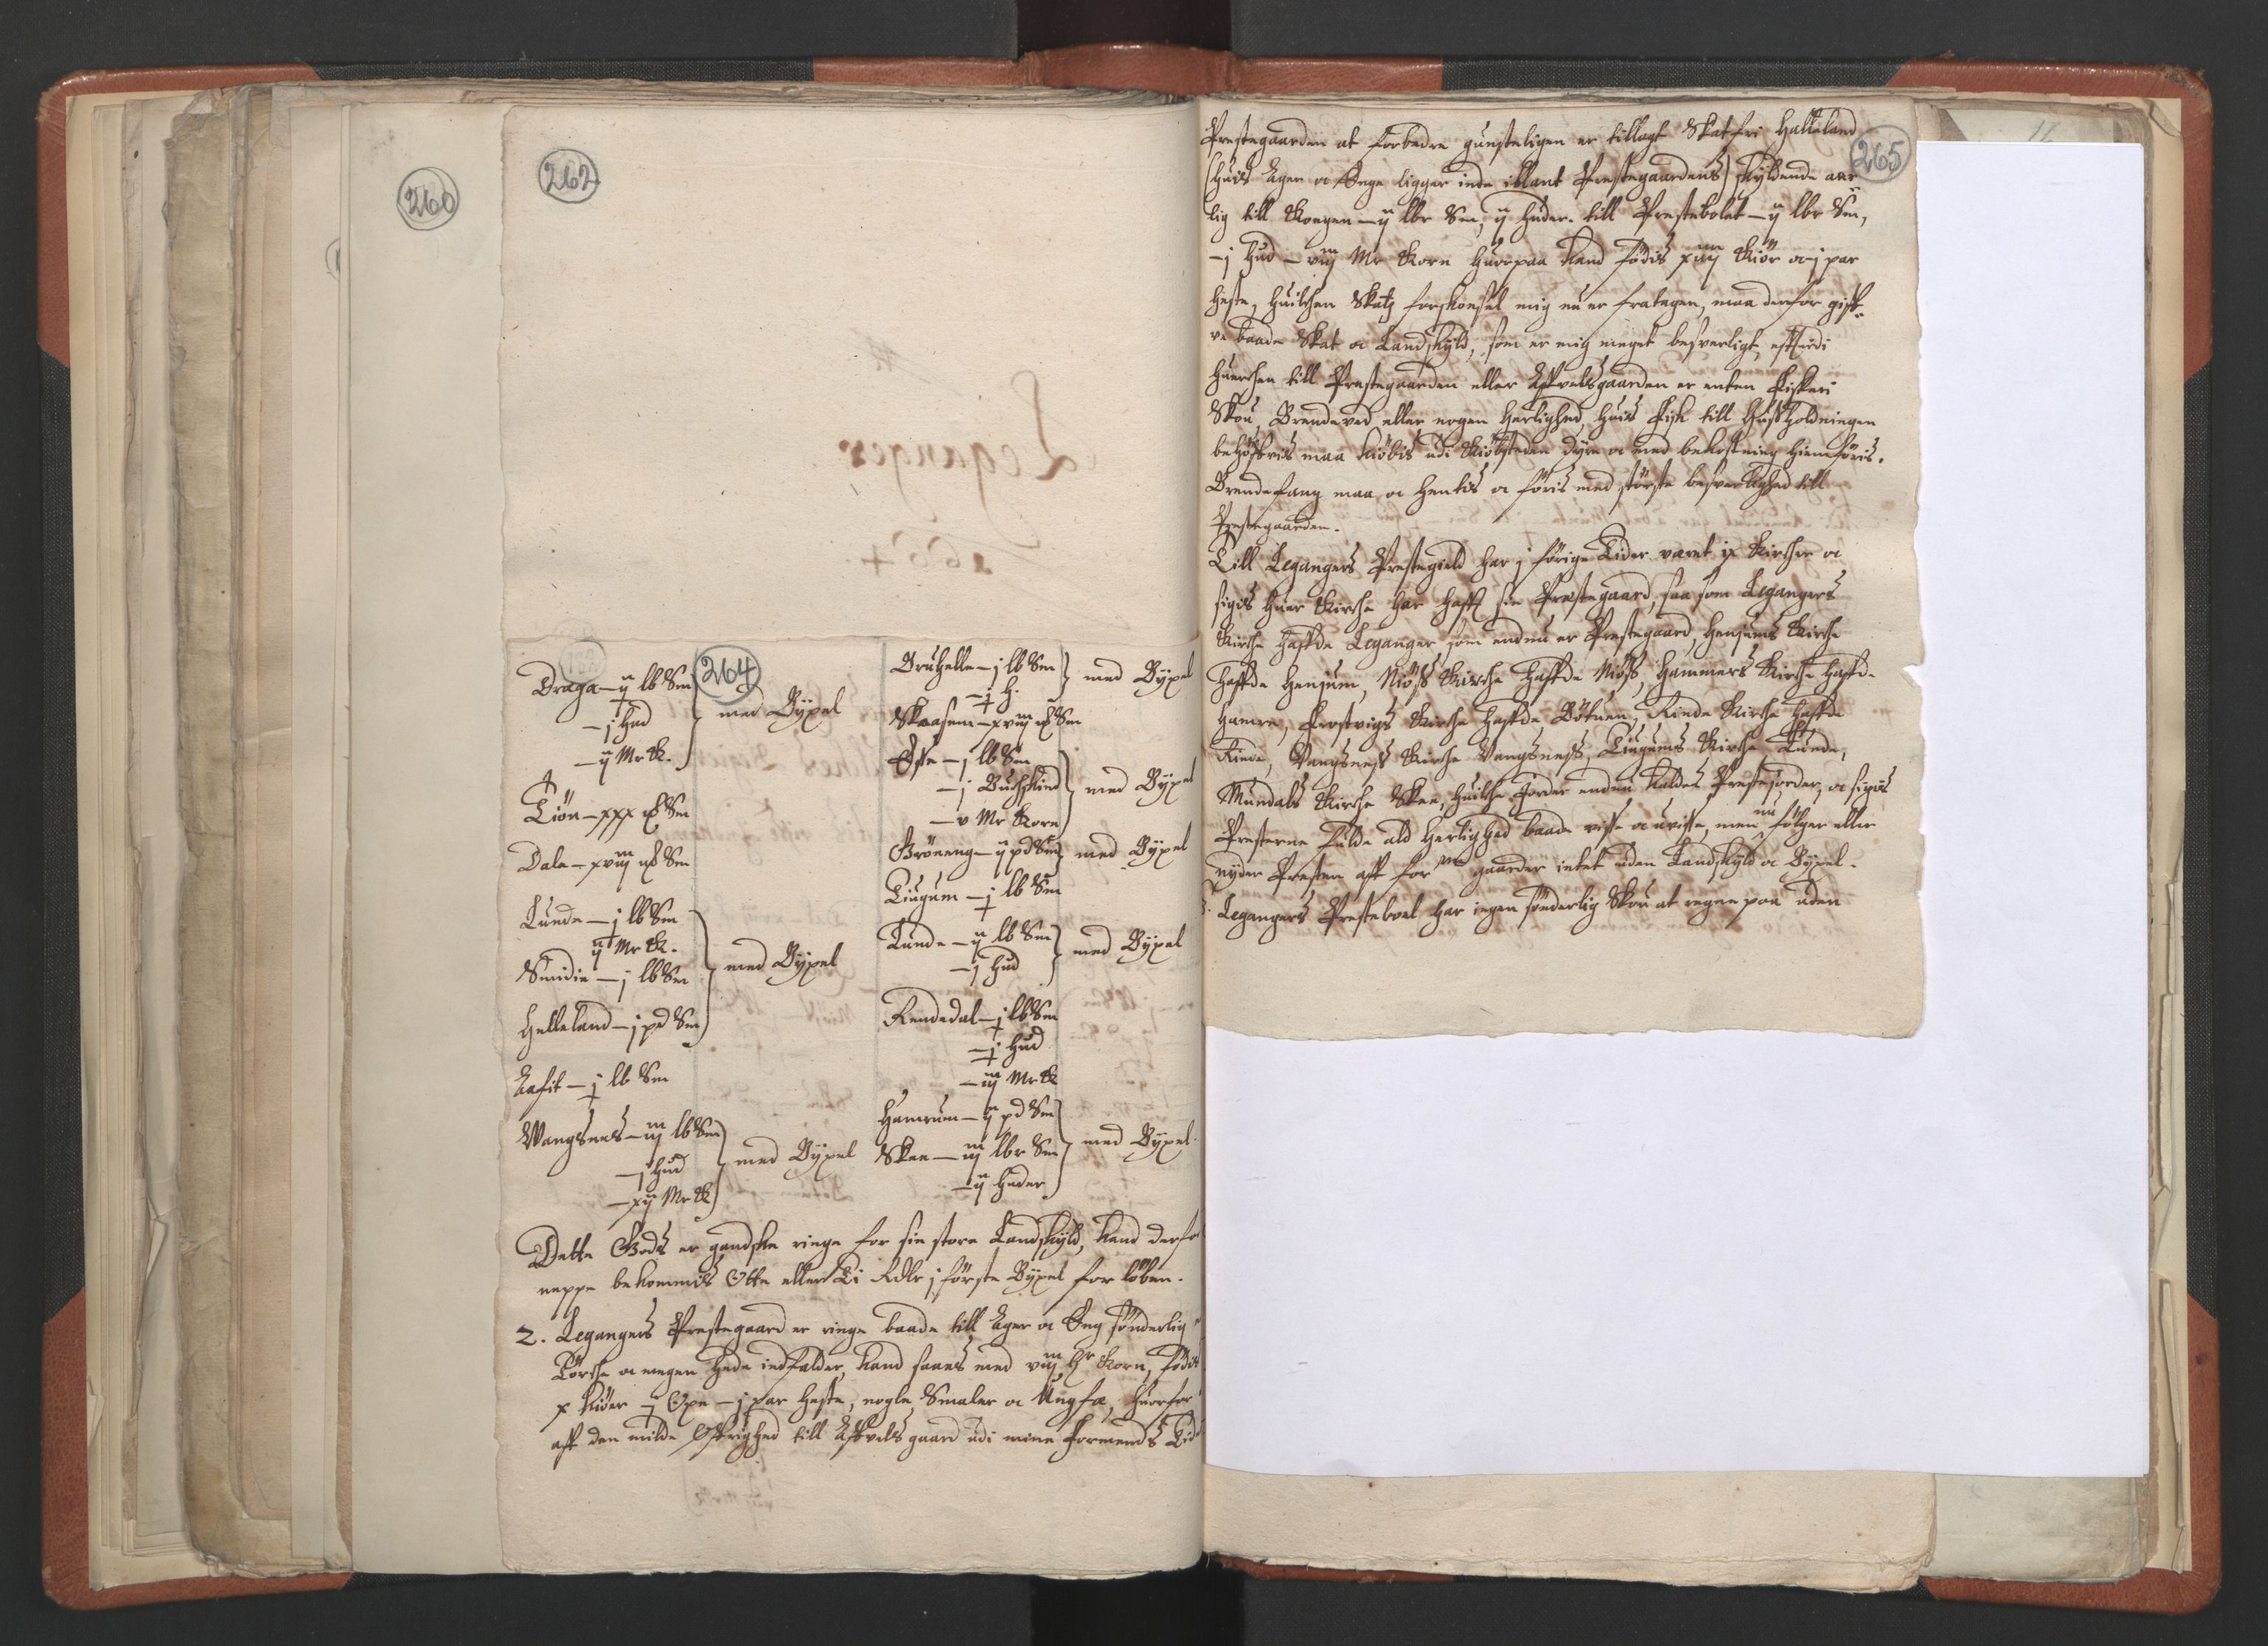 260
262
Leganger
1664
264
Draga – ij lb Sm
– j Hud
– ij Mr K.
med Býxel
Liön – xxx ℔ Sm
Dale – xviij ℔ Sm
Lunde – j lb Sm
ij Mr K.
Sundin – j lb Sm
Helleland – j pd Sm
med Býxel
Aafit – j lb Sm
Wangsnes – iij lb Sm
– j Hud
– xij Mr K
med Býxel
Gruhelle – j lb Sm
– j H.
med Býxel
Skaasem – xviij ℔ Sm
Esse – j lb Sm
– j Buchskind
– v Mr Korn
med Býxel
Gröneng – ij pd Sm med Býxel
Liugum – j lb Sm
Tunde – ij lb Sm
– j Hud
med Býxel
Rendedal – j lb Sm
– j Hud
– iij Mr K
Hamrum – ij pd Sm
Skee – iij lbr Sm
– ij Huder
med Býxel.
Dette Gods er gandske ringe for sin store Landskýld, kand derfor
neppe bekommis Otte eller Ti Rdlr j förste Býxel for löben.
2. Legangers Prestegaard er ringe baade till Ager oc Eng sönderlig
Törcke oc megen Hede indfalder, kand saaes med viij Hr Korn, födis
x Kiöer j Oxe – j par Heste, nogle Smaler oc Ungfæ, Huorfor
aff den milde Öfrighed till Afvels gaard udi mine Formends Tid
265
Prestegaarden at forbedre gunsteligen er tillagt Skatfri Halleland
(huis Ager oc Enge ligger inde iblant Prestegaardens) skýldende aar
lig till Kongen – ij lbr Sm, ij Huder. till Prestebolet – ij lbr Sm,
– j Hud – viij Mr Korn huorpaa kand födis xiiij Kiör oc j par
Heste, huilchen Skatz forskonsel mig nu er fratagen, maa derfor giff-
ve baade Skat oc Landskýld, som er mig meget besverligt, effterdi
huerchen till Prestegaarden eller Afvelsgaarden er enten Fiskeri
Skou, Brendeved eller nogen Herlighed, huis Fisk till Husholdningen
behöffvis maa kiöbis udi Kiöbsteden dýre oc med bekostning hiemföris.
Brendefang maa oc hentis oc föris med störste besverlighed till
Prestegaarden.
Till Legangers Prestegield har j förige Tider været ix Kircher oc
sigis huer Kirche har hafft sin Prestegaard, saa som Legangers
Kirche haffde Leganger, som endnu er Prestegaard, Henjums Kirche
haffde Henjum, Niöss Kirche haffde Niöss, Hammers Kirche haffde
Hamre, Frestvigs Kirche haffde Bötnen, Rinde Kirche haffde
Rinde, Vangsness Kirche Vangsness, Liugums Kirche Tunde,
Mundals Kirche Skee, huilche Jorder endnu kaldes Prestejorder, oc sigis
Presterne fulde ald Herlighed baade visse oc uvisse, men nu fölger eller
nýder Presten aff forne gaarder intet uden Landskýld oc Býxel.
3. Legangers Prestebool har ingen sönderlig Skou at regne paa uden